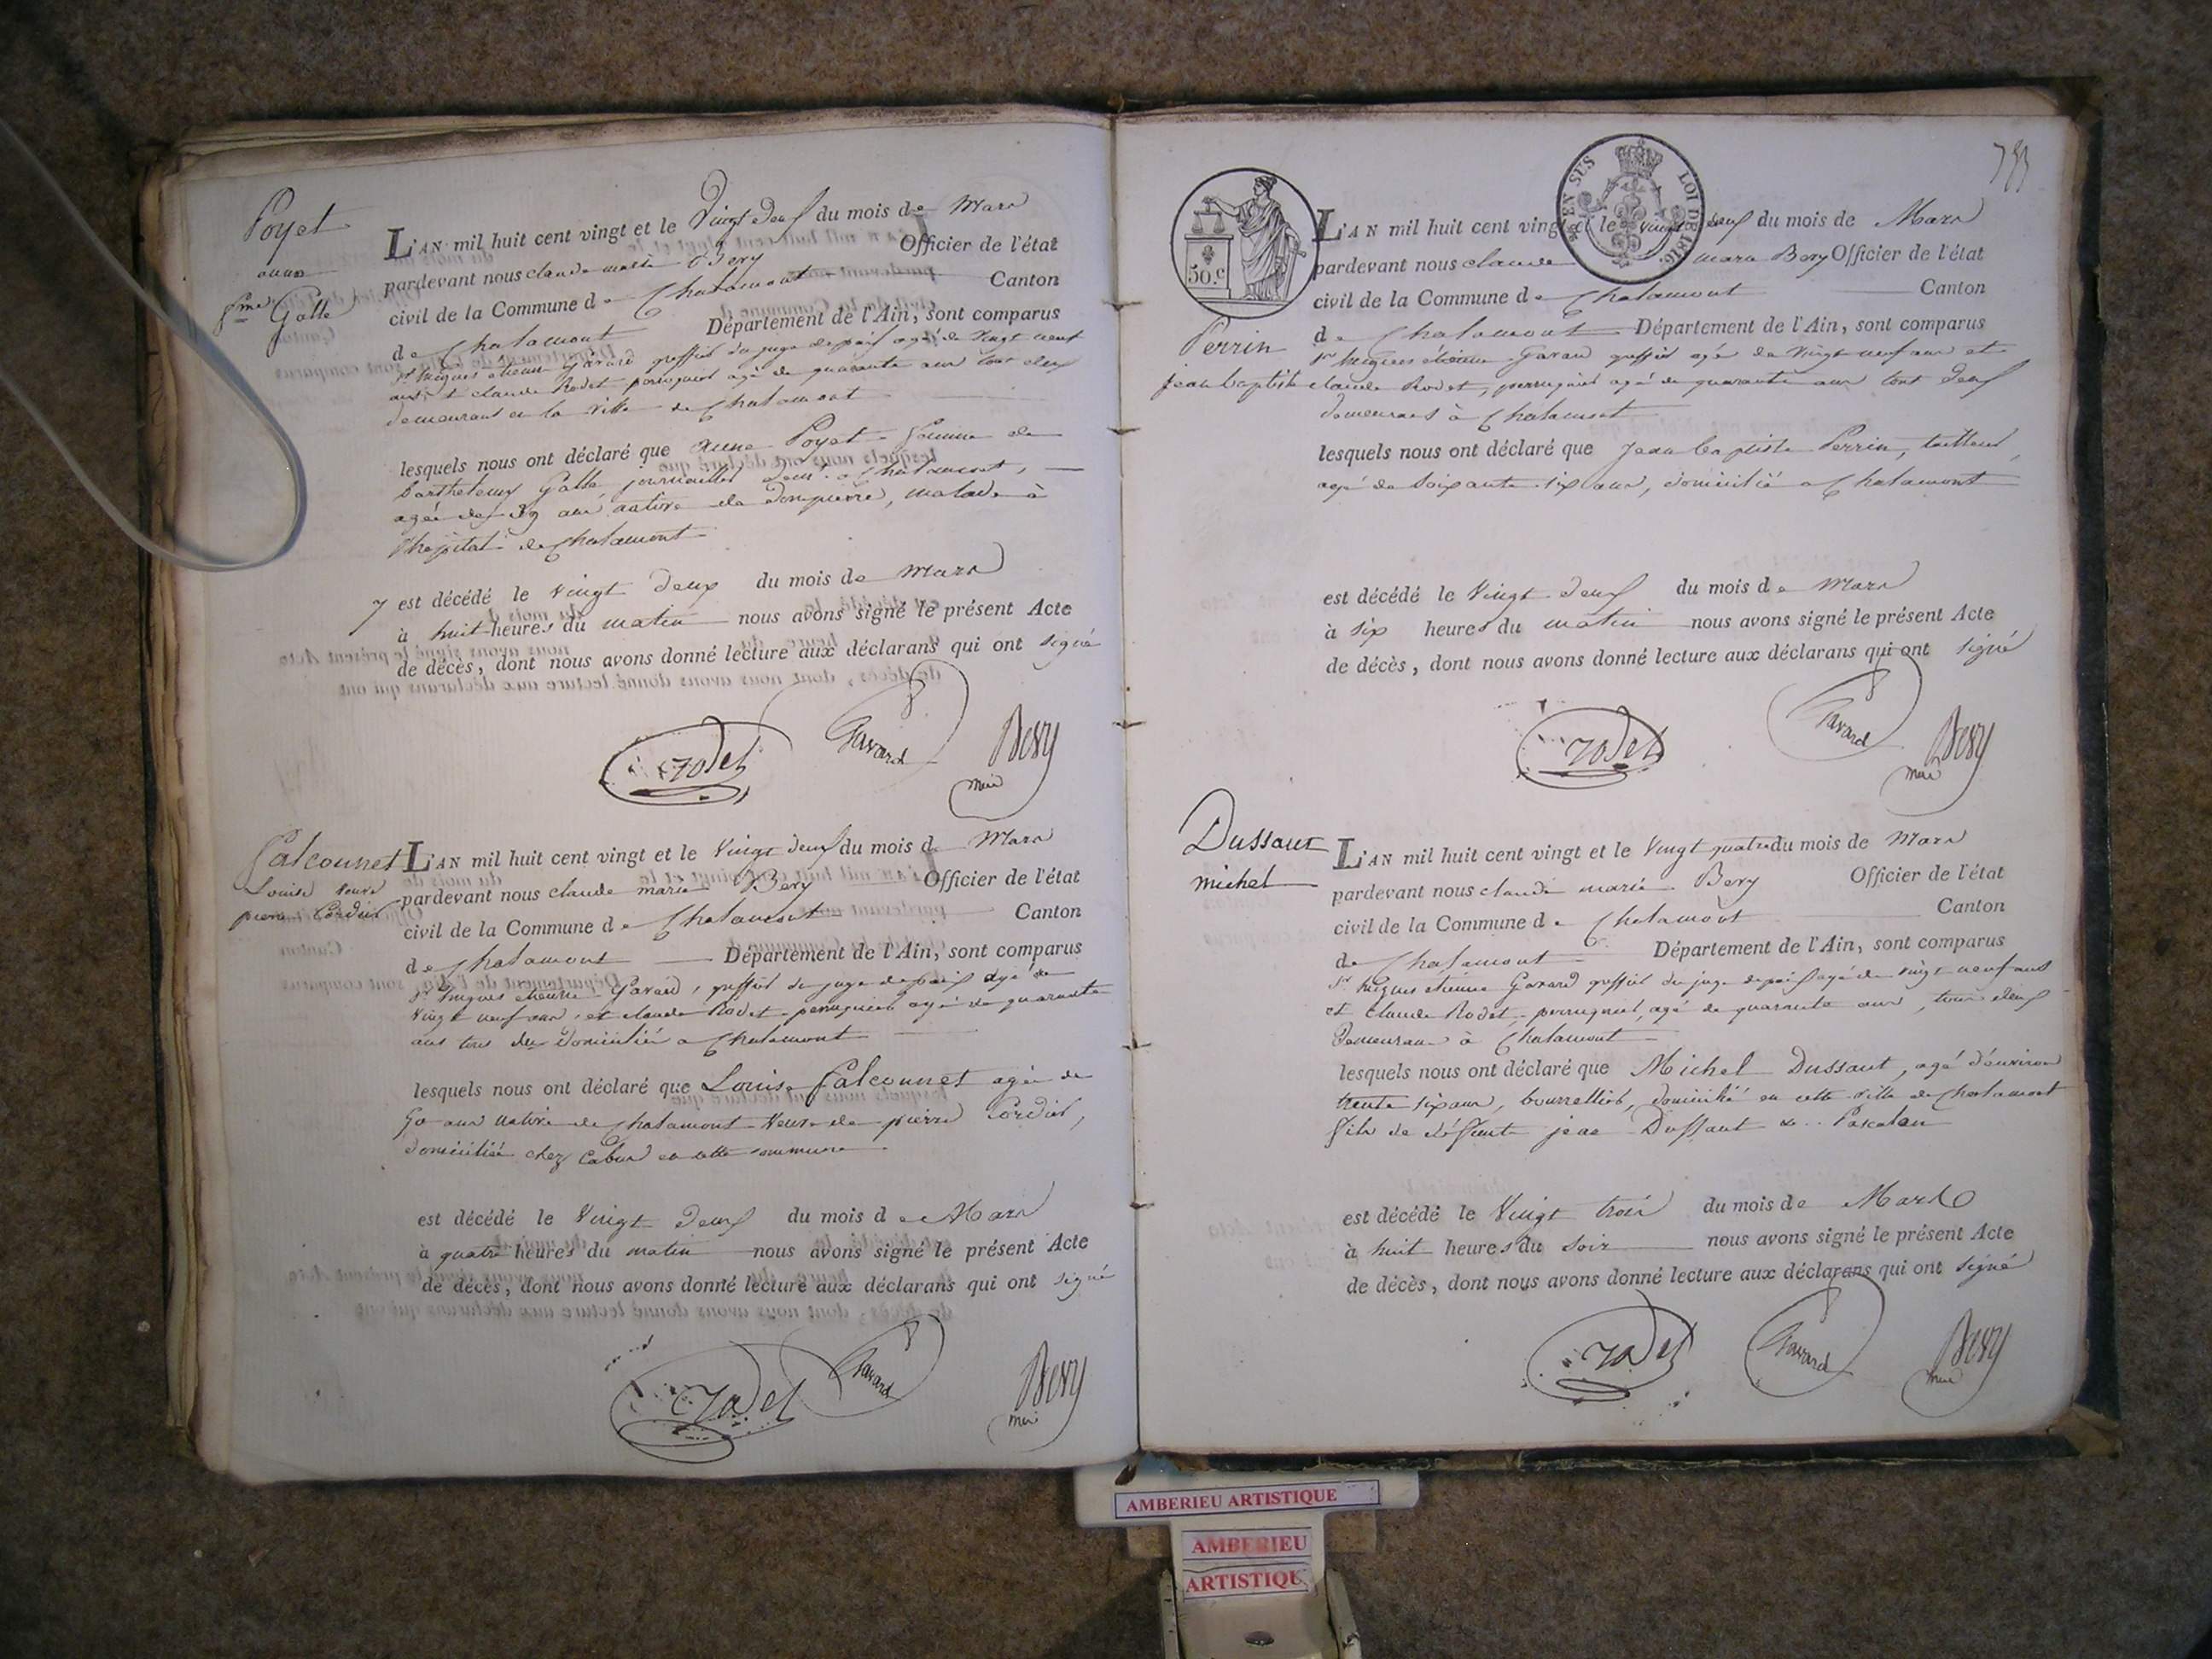 Poyet
anne
fme Galle
L'AN mil huit cent vingt et le vingt deux du mois de Mars
pardevant nous claude marie Bery Officier de l'état
civil de la Commune de Chalamont Canton
de Chalamont Département de l'Ain, sont comparus
Sr hugues etienne Gavard greffier du juge de paix agé de vingt neuf
ans et claude Rodet perruquier agé de quarante ans tous deux
demeurant en la ville de Chalamont
lesquels nous ont déclaré que anne Poyet femme de
barthelemy Galle journallier demt a Chalamont,
agée de 39 ans native de dompierre, malade à
l'hopital de Chalamont
y est décédé le vingt deux du mois de Mars
à huit heures du matin nous avons signé le présent Acte
de décès, dont nous avons donné lecture aux déclarans qui ont signé
Rodet Gavard Bery
mai
Falconnet
Louise veuve
pierre Cordier
L'AN mil huit cent vingt et le vingt deux du mois de Mars
pardevant nous claude marie Bery Officier de l'état
civil de la Commune de Chalamont Canton
de Chalamont Département de l'Ain, sont comparus
Sr hugues etienne Gavard, greffier du juge de paix agé de
vingt neuf ans, et claude Rodet perruquier agé de quarante
ans tous deux domiciliés a Chalamont
lesquels nous ont déclaré que Louise Falconnet agée de
ans native de Chalamont veuve de pierre Cordier,
domiciliée chez en cette commune
est décédé le vingt deux du mois de Mars
à quatre heures du matin nous avons signé le présent Acte
de décès, dont nous avons donné lecture aux déclarans qui ont signé
Rodet Gavard Bery
mai
793
EN SUS LOI DE 1816.
50.c
Perrin
jean baptiste
L'AN mil huit cent vingt et le vingt deux du mois de Mars
pardevant nous claude marie Bery Officier de l'état
civil de la Commune de Chalamont Canton
de Chalamont Département de l'Ain, sont comparus
Sr hugues etienne Gavard greffier agé de vingt neuf ans et
claude Rodet, perruquier agé de quarante ans tous deux
demeurans à Chalamont
lesquels nous ont déclaré que Jean baptiste Perrin, tailleur,
agé de soixante six ans, domicilié a Chalamont
est décédé le vingt deux du mois de Mars
à six heures du matin nous avons signé le présent Acte
de décès, dont nous avons donné lecture aux déclarans qui ont signé
Rodet Gavard Bery
mai
Dussaut
michel
L'AN mil huit cent vingt et le vingt quatre du mois de Mars
pardevant nous claude marie Bery Officier de l'état
civil de la Commune de Chalamont Canton
de Chalamont Département de l'Ain, sont comparus
Sr hugues etienne Gavard greffier du juge de paix agé de vingt neuf ans
et Claude Rodet, perruquier, agé de quarante ans, tous deux
demeurans à Chalamont
lesquels nous ont déclaré que Michel Dussaut, agé d'environ
trente six ans, bourrellier, domicilié en cette ville de Chalamont
fils de deffunt jean Dussaut
est décédé le vingt trois du mois de Mars
à huit heures du soir nous avons signé le présent Acte
de décès, dont nous avons donné lecture aux déclarans qui ont signé
Rodet Gavard Bery
mai
AMBERIEU ARTISTIQUE
AMBERIEU
ARTISTIQU